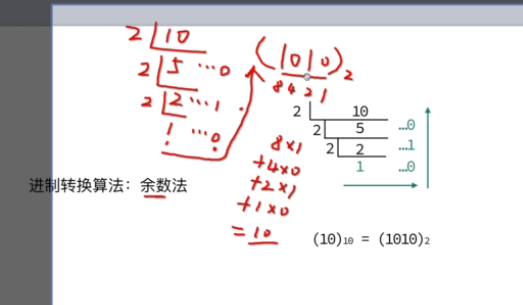 2 10
2 5 …0
2 2 …1
1 …0
(1010)₂
8 4 2 1
8×1
+4×0
+2×1
+1×0
=10
2 10
2 5 …0
2 2 …1
1 …0
进制转换算法：余数法
(10)₁₀ = (1010)₂